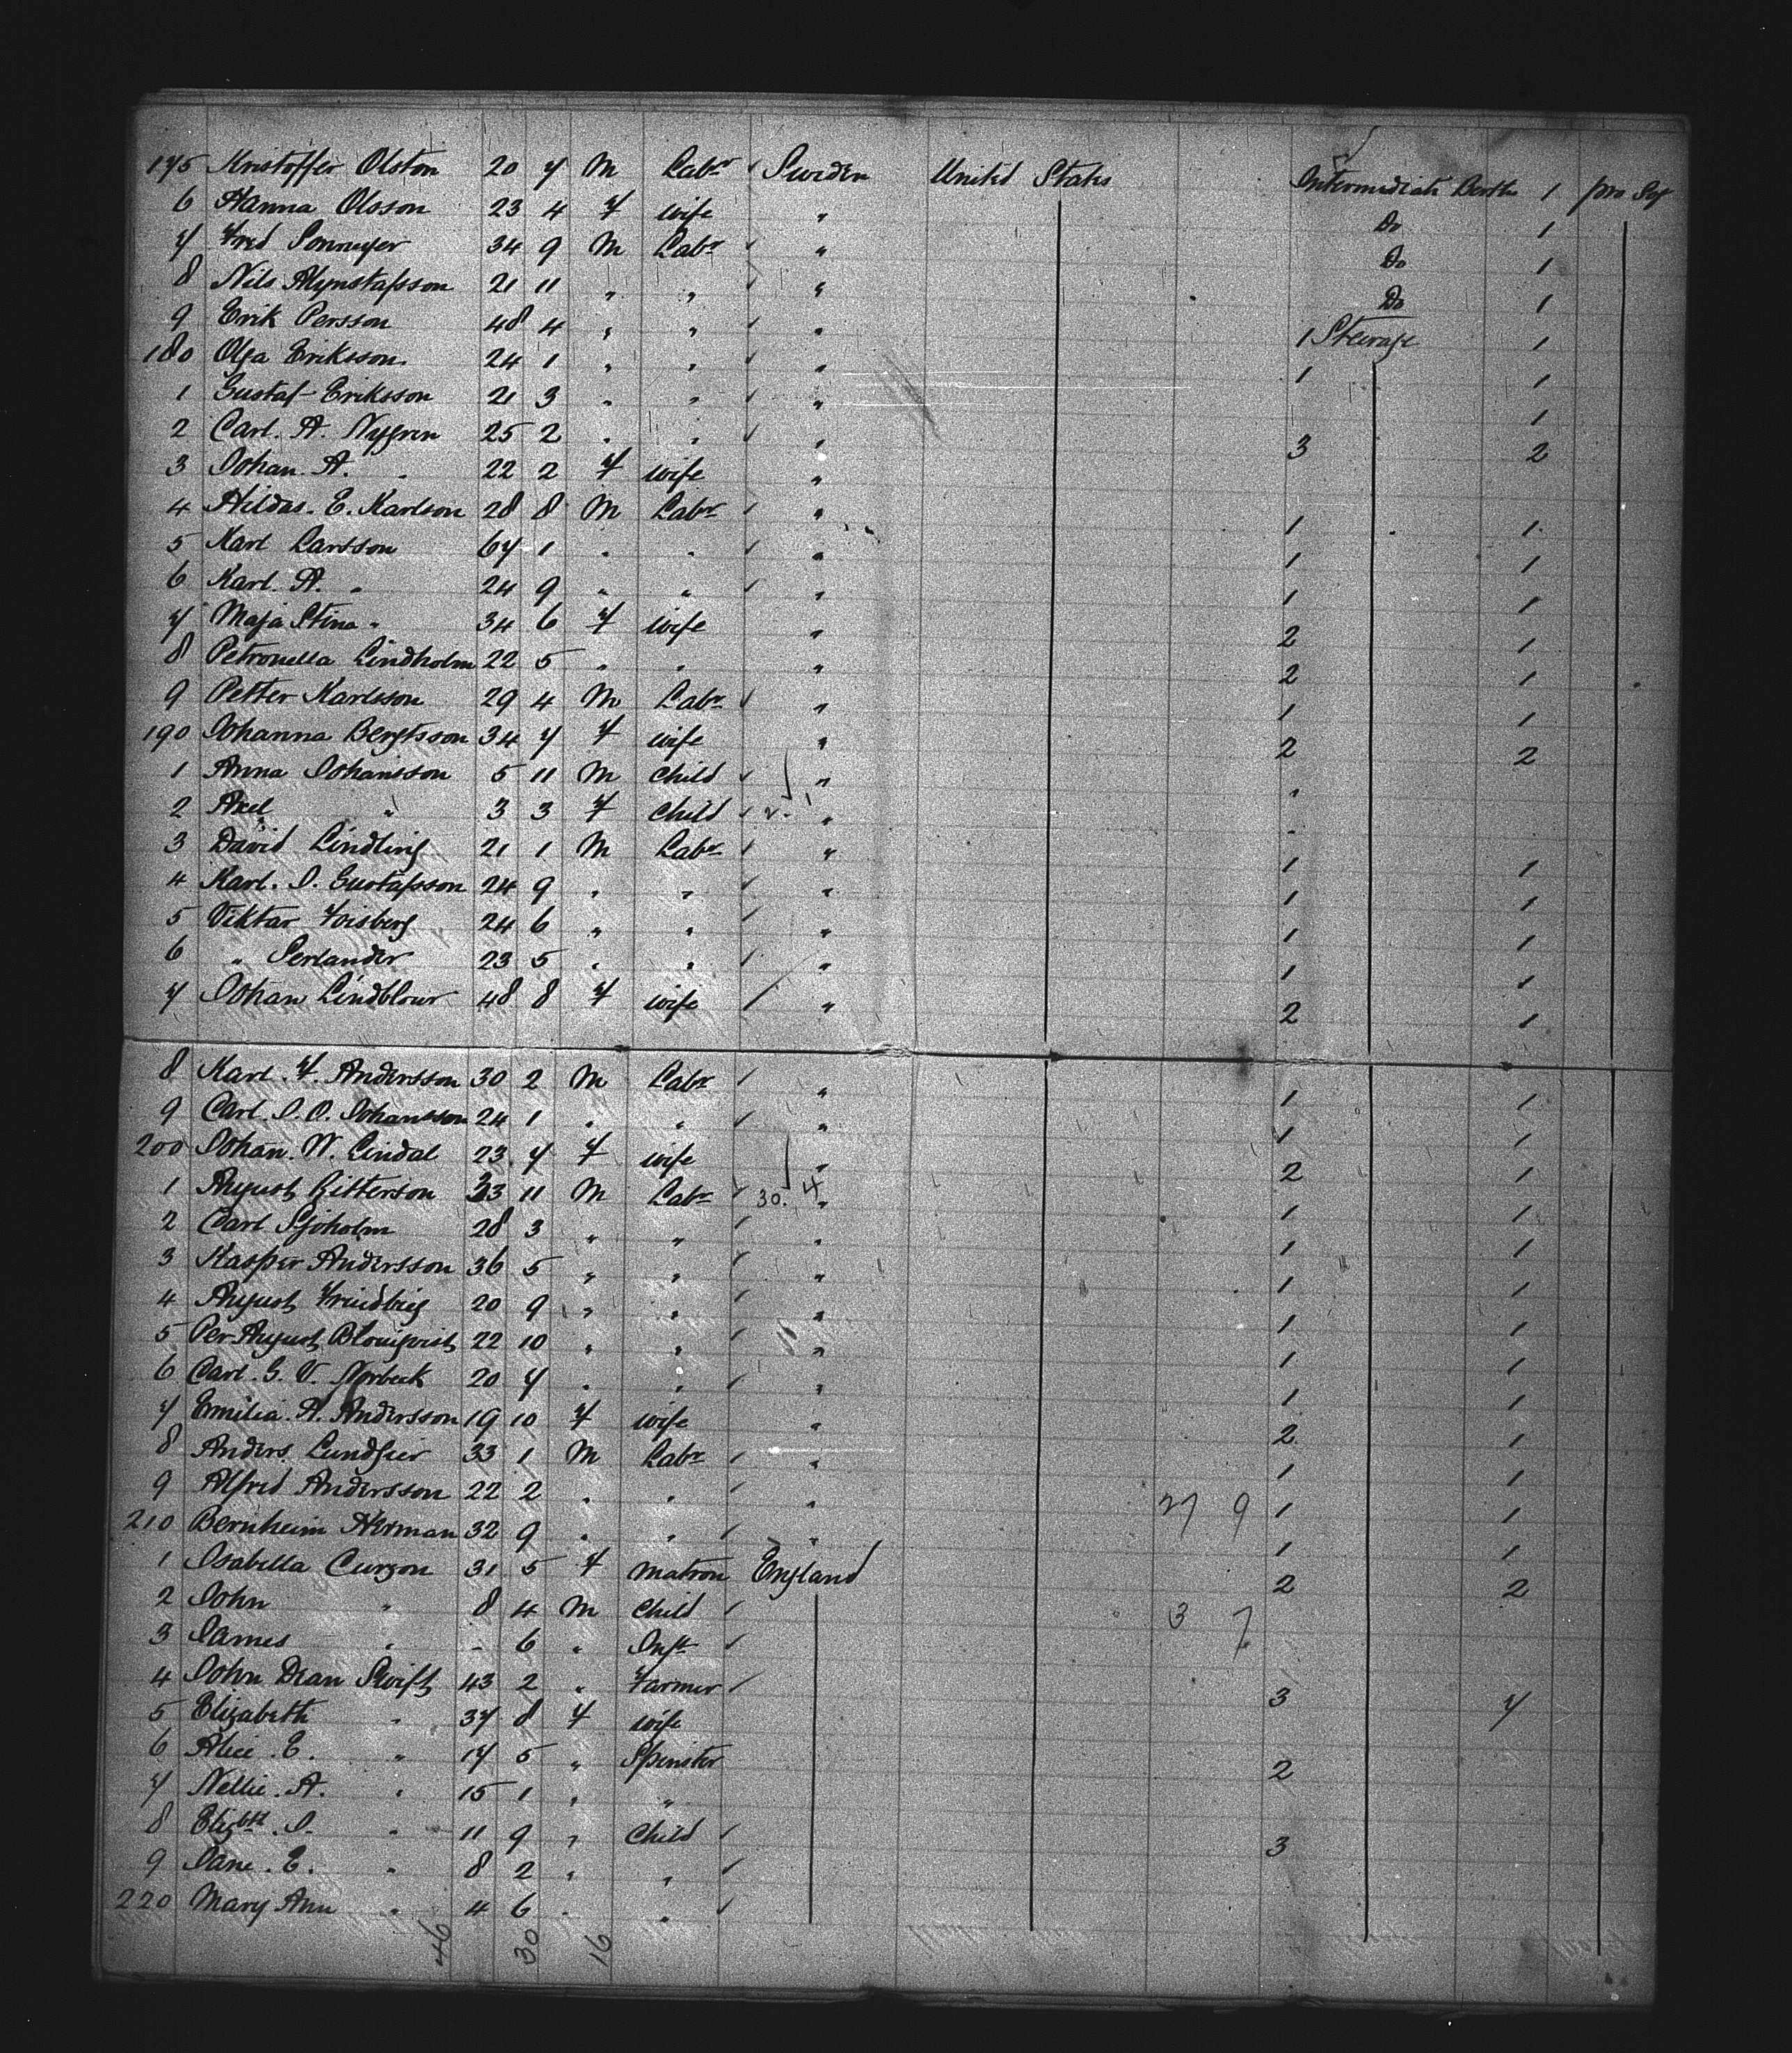 175 Kristoffer Olston 20 7 M Labr Sweden United States Intermediate Berth 1 pro Seg
6 Hanna Olsson 23 4 F wife " Do 1
7 Fred 34 9 M Labr " Do 1
8 Nils 21 11 " " " Do 1
9 Erik Persson 48 4 " " " 1 Steerage 1
180 Olga Eriksson 24 1 " " " 1 1
1 Gustaf Eriksson 21 3 " " " 1
2 Carl. A. Nygren 25 2 " " " 3 2
3 Johan. A. " 22 2 F wife "
4 Hildas. E. Karlson 28 8 M Labr " 1 1
5 Karl Larsson 67 1 " " " 1 1
6 Karl. A. " 24 9 " " " 1 1
7 Maja Stina " 34 6 F wife " 2 1
8 Petronella Lindholm 22 5 " " " 2 1
9 Petter Karlsson 29 4 M Labr " 1 1
190 Johanna Bengtsson 34 7 F wife " 2 2
1 Anna Johansson 5 11 M Child " "
2 Axel " 3 3 F Child 2. 1 " "
3 David Lindling 21 1 M Labr " 1 1
4 Karl. J. Gustafsson 24 9 " " " 1 1
5 Viktar Foisberg 24 6 " " " 1 1
6 " Serlander 23 5 " " " 1 1
7 Johan Lindblour 48 8 F wife " 2 1
8 Karl. F. Andersson 30 2 M Labr " 1 1
9 Carl. J. O. Johansson 24 1 " " " 1 1
200 Johan. W. Lindal 23 7 F wife " 2 1
1 August Gitterson 33 11 M Labr 30. 4 " 1 1
2 Carl Sjoholm 28 3 " " " 1 1
3 Kasper Andersson 36 5 " " " 1 1
4 August 20 9 " " " 1 1
5 Per August Blouqvist 22 10 " " " 1 1
6 Carl. G. V. Norbeck 20 7 " " " 1 1
7 Emilia. A. Andersson 19 10 F wife " 2 1
8 Anders. 33 1 M Labr " 1 1
9 Alfred Andersson 22 2 " " " 27 9 1 1
210 Bernheim Herman 32 9 " " " 1 1
1 Isabella Curzon 31 5 F Matron England 2 2
2 John " 8 4 M Child 3 7
3 James " - 6 " Inft
4 John Dean Swift 43 2 " Farmer 3 7
5 Elizabeth " 37 8 F wife
6 Alice. E. " 17 5 " Spinster 2
7 Nellie. A. " 15 1 " "
8 Elizbth. J. " 11 9 " Child 3
9 Jane. E. " 8 2 " "
220 Mary Ann " 4 6 " "
46 30 16